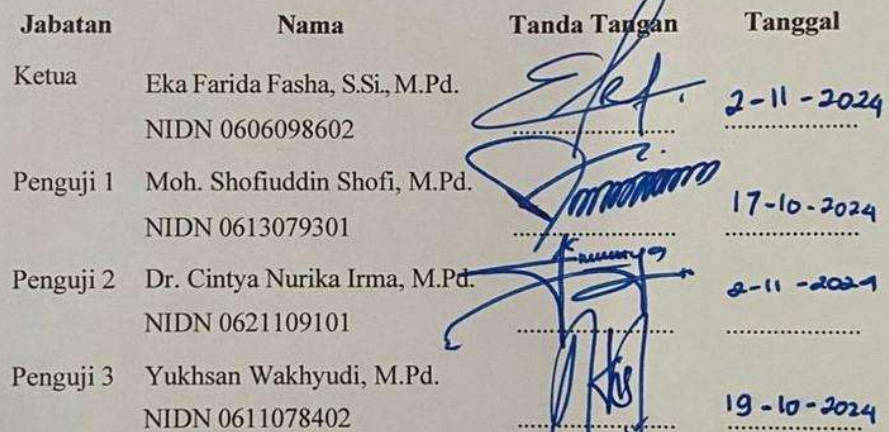 Jabatan Nama Tanda Tangan Tanggal
Ketua Eka Farida Fasha, S.Si., M.Pd. 2-11-2024
NIDN 0606098602
Penguji 1 Moh. Shofiuddin Shofi, M.Pd. 17-10-2024
NIDN 0613079301
Penguji 2 Dr. Cintya Nurika Irma, M.Pd. 2-11-2024
NIDN 0621109101
Penguji 3 Yukhsan Wakhyudi, M.Pd.
NIDN 0611078402 19-10-2024